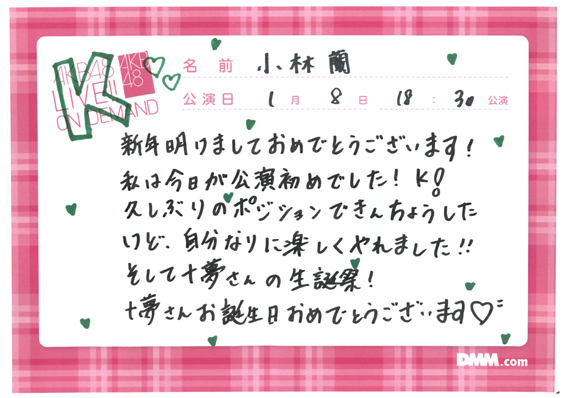 K
AKB48
LIVE!!
ON DEMAND
AKB
48
名前 小林蘭
公演日 1月8日 18:30公演
新年明けましておめでとうございます!
私は今日が公演初めでした! K!
久しぶりのポジションできんちょうした
けど、自分なりに楽しくやれました!!
そして十夢さんの生誕祭!
十夢さんお誕生日おめでとうございます♡
DMM.com